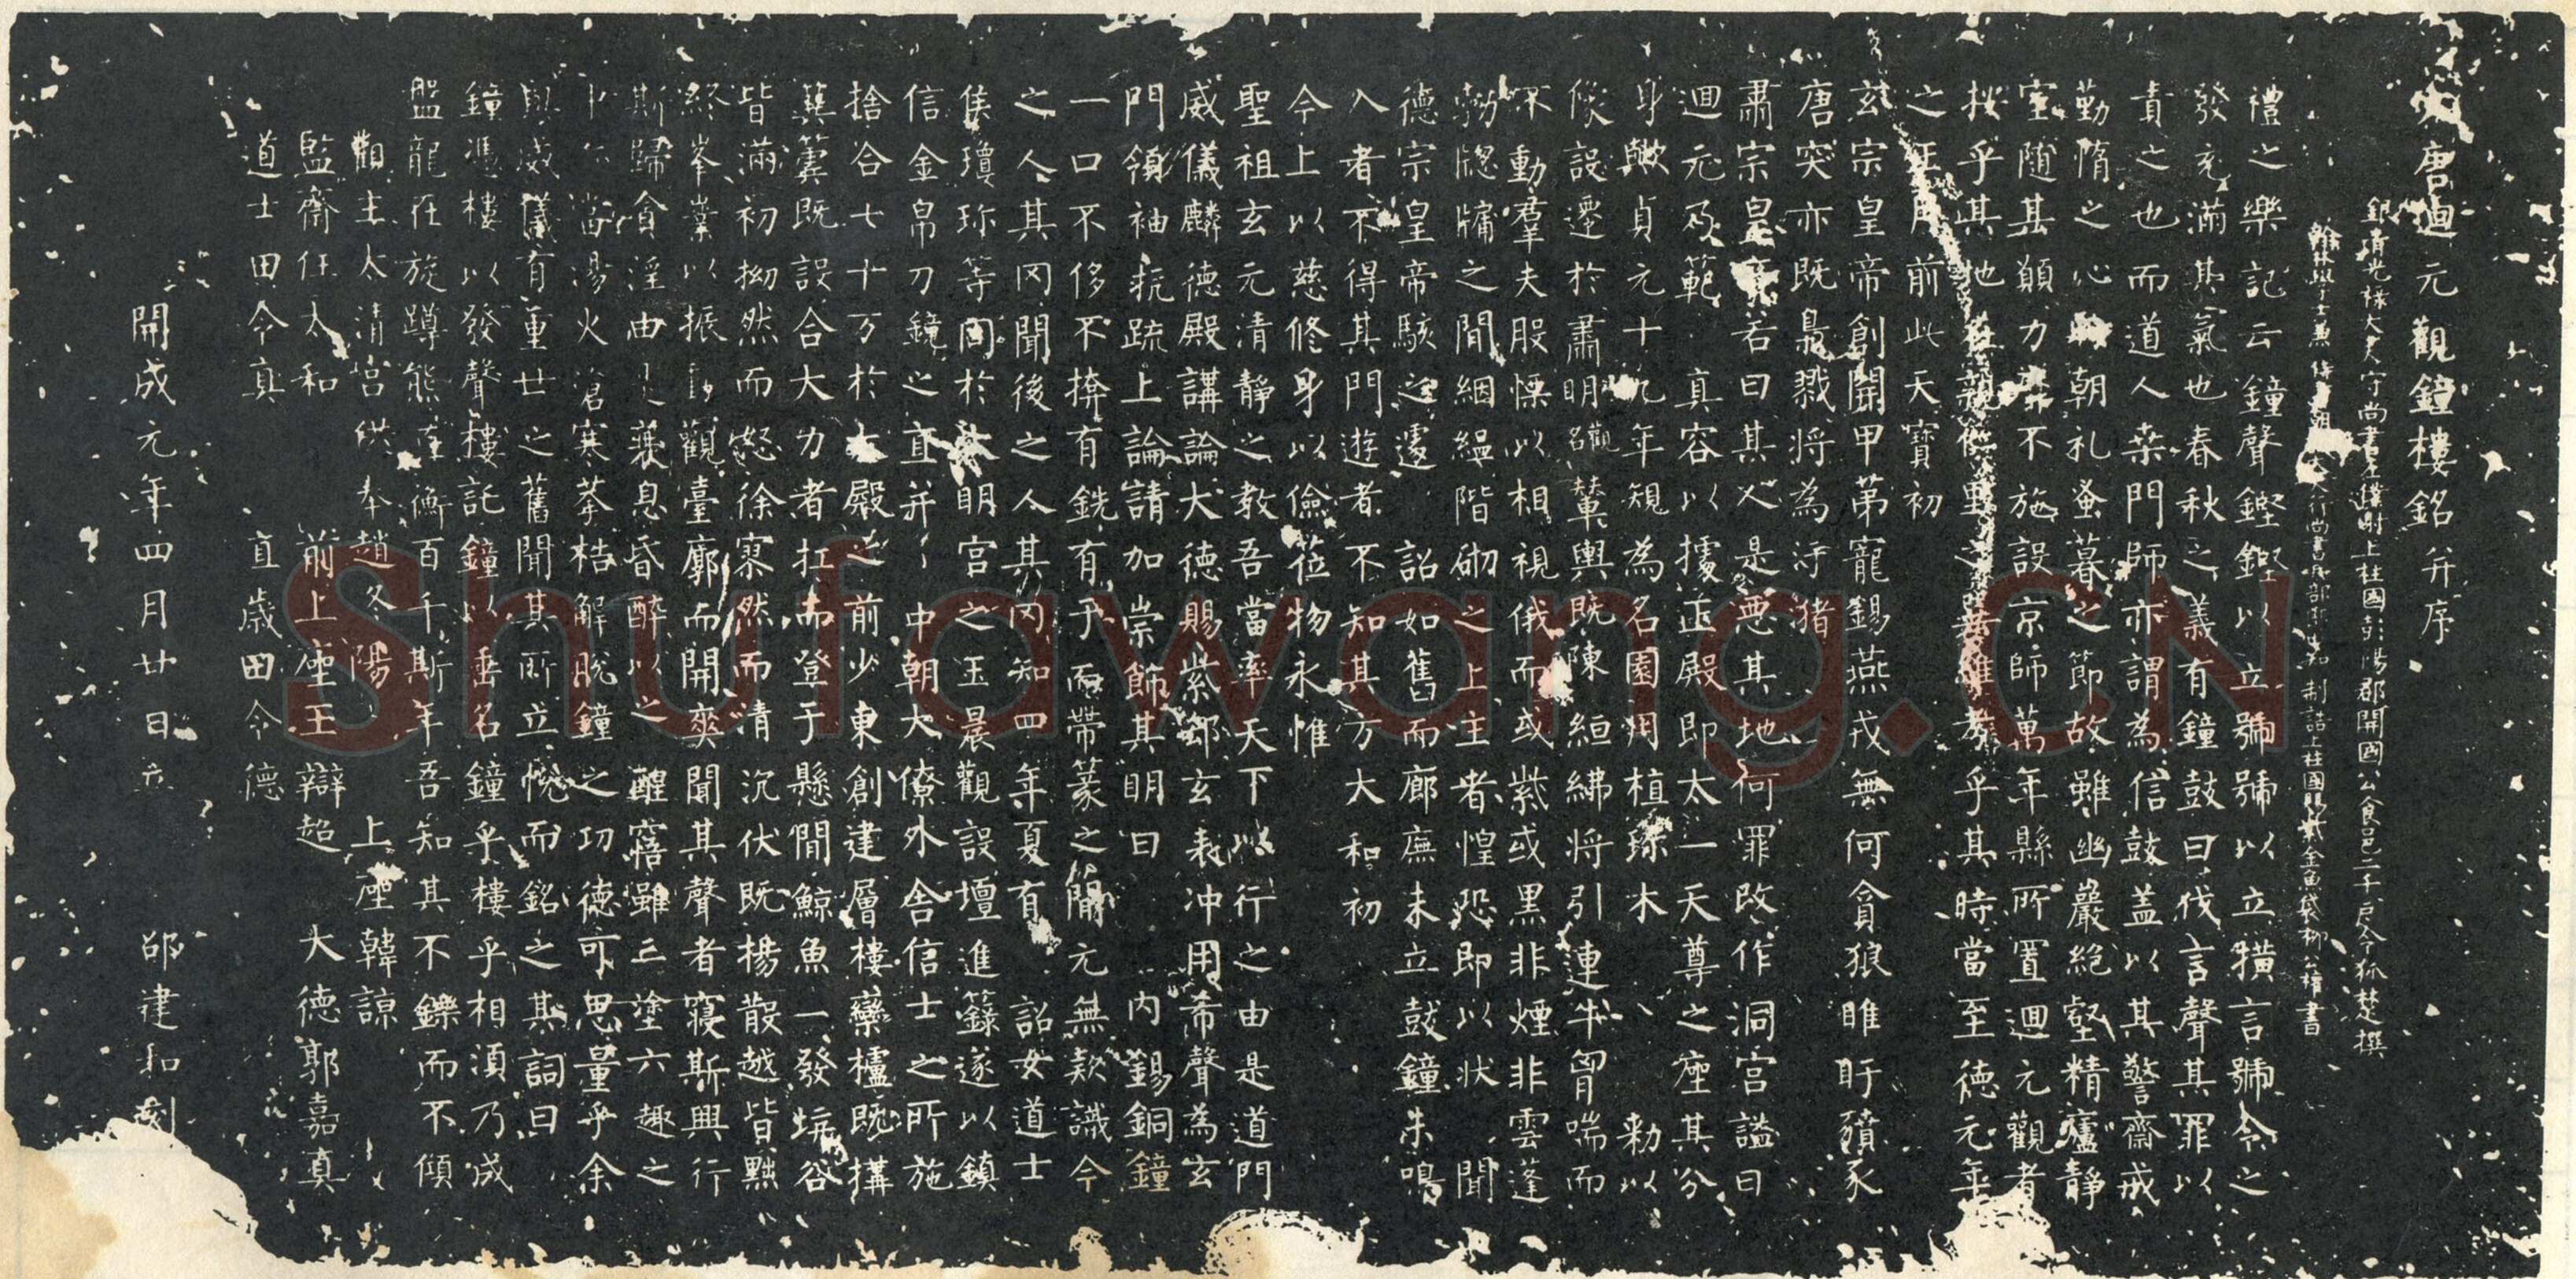 大唐迴元觀鐘樓銘并序
銀青光祿大夫守尚書左僕射上柱國彭陽郡開國公食邑二千戶令狐楚撰
翰林學士兼侍書朝 大夫行尚書兵部郎中知制誥上柱國賜紫金魚袋柳公權書
禮之樂記云鐘聲鏗鏗以立號號以立橫言號令之
發充滿其氣也春秋之義有鐘鼓曰伐言聲其罪以
責之也而道人桑門師亦謂為信鼓盖以其警齋戒
勤惰之心 朝礼蚤暮之節故雖幽巖絕壑精廬靜
室隨其願力 不施設京師萬年縣所置迴元觀者
桉乎其地 在親仁里之 維考乎其時當至德元年
之正月前此天寶初
玄宗皇帝創開甲第寵錫燕戎無何貪狼睢盱豶豕
唐突亦既梟戮將為洿猪
肅宗皇帝若曰其人是惡其地何罪改作洞宮謚曰
迴元乃範真容以據正殿即太一天尊之座其分
身歟貞元十九年規為名園用植琭木敕以
像設遷於肅明觀名輦輿既陳絙紼將引連牛胷喘而
不動羣夫股慄以相視俄而或紫或黑非煙非雲蓬
勃牕牖之間綑緼階砌之上主者惶恐即以狀聞
德宗皇帝駭之遽詔如舊而廊廡未立鼓鐘未鳴
入者不得其門遊者不知其方大和初
今上以慈修身以儉莅物永惟
聖祖玄元清靜之教吾當率天下以行之由是道門
威儀麟德殿講論大德賜紫郄玄表冲用希聲為玄
門領袖抗疏上論請加崇飾其明曰內錫銅鐘
一口不侈不撩有銑有于而帶篆之間元無欵識今
之人其罔聞後之人其罔知四年夏有詔女道士
侯瓊珎等同於大明宮之玉晨觀設壇進籙遂以鎮
信金帛刀鏡之直并中朝大僚外舍信士之所施
捨合七十万於大殿之前少東創建層樓欒櫨既構
簨簴既設合大力者扛而登于懸間鯨魚一發坑谷
皆滿初拗然而怒徐寥然而清沉伏既揚散越皆黜
終峯業以振 觀臺廓而開爽聞其聲者寢斯興行
斯歸貪淫由是衰息昏醉以之醒寤雖三塗六趣之
中 當湯火滄寒拲梏解脫鐘之功德可思量乎余
與威儀有重世之舊聞其所立悅而銘之其詞曰
鐘憑樓以發聲樓託鐘以垂名鐘乎樓乎相須乃成
盤龍在旋蹲熊 衡百千斯年吾知其不鑠而不傾
觀主太清宮供奉趙冬陽 上座韓諒
監齋任太和 前上座王辯超 大德郭嘉真
道士田令真 直歲田令德
開成元年四月廿日立 邵建和刻
Shufawang.CN